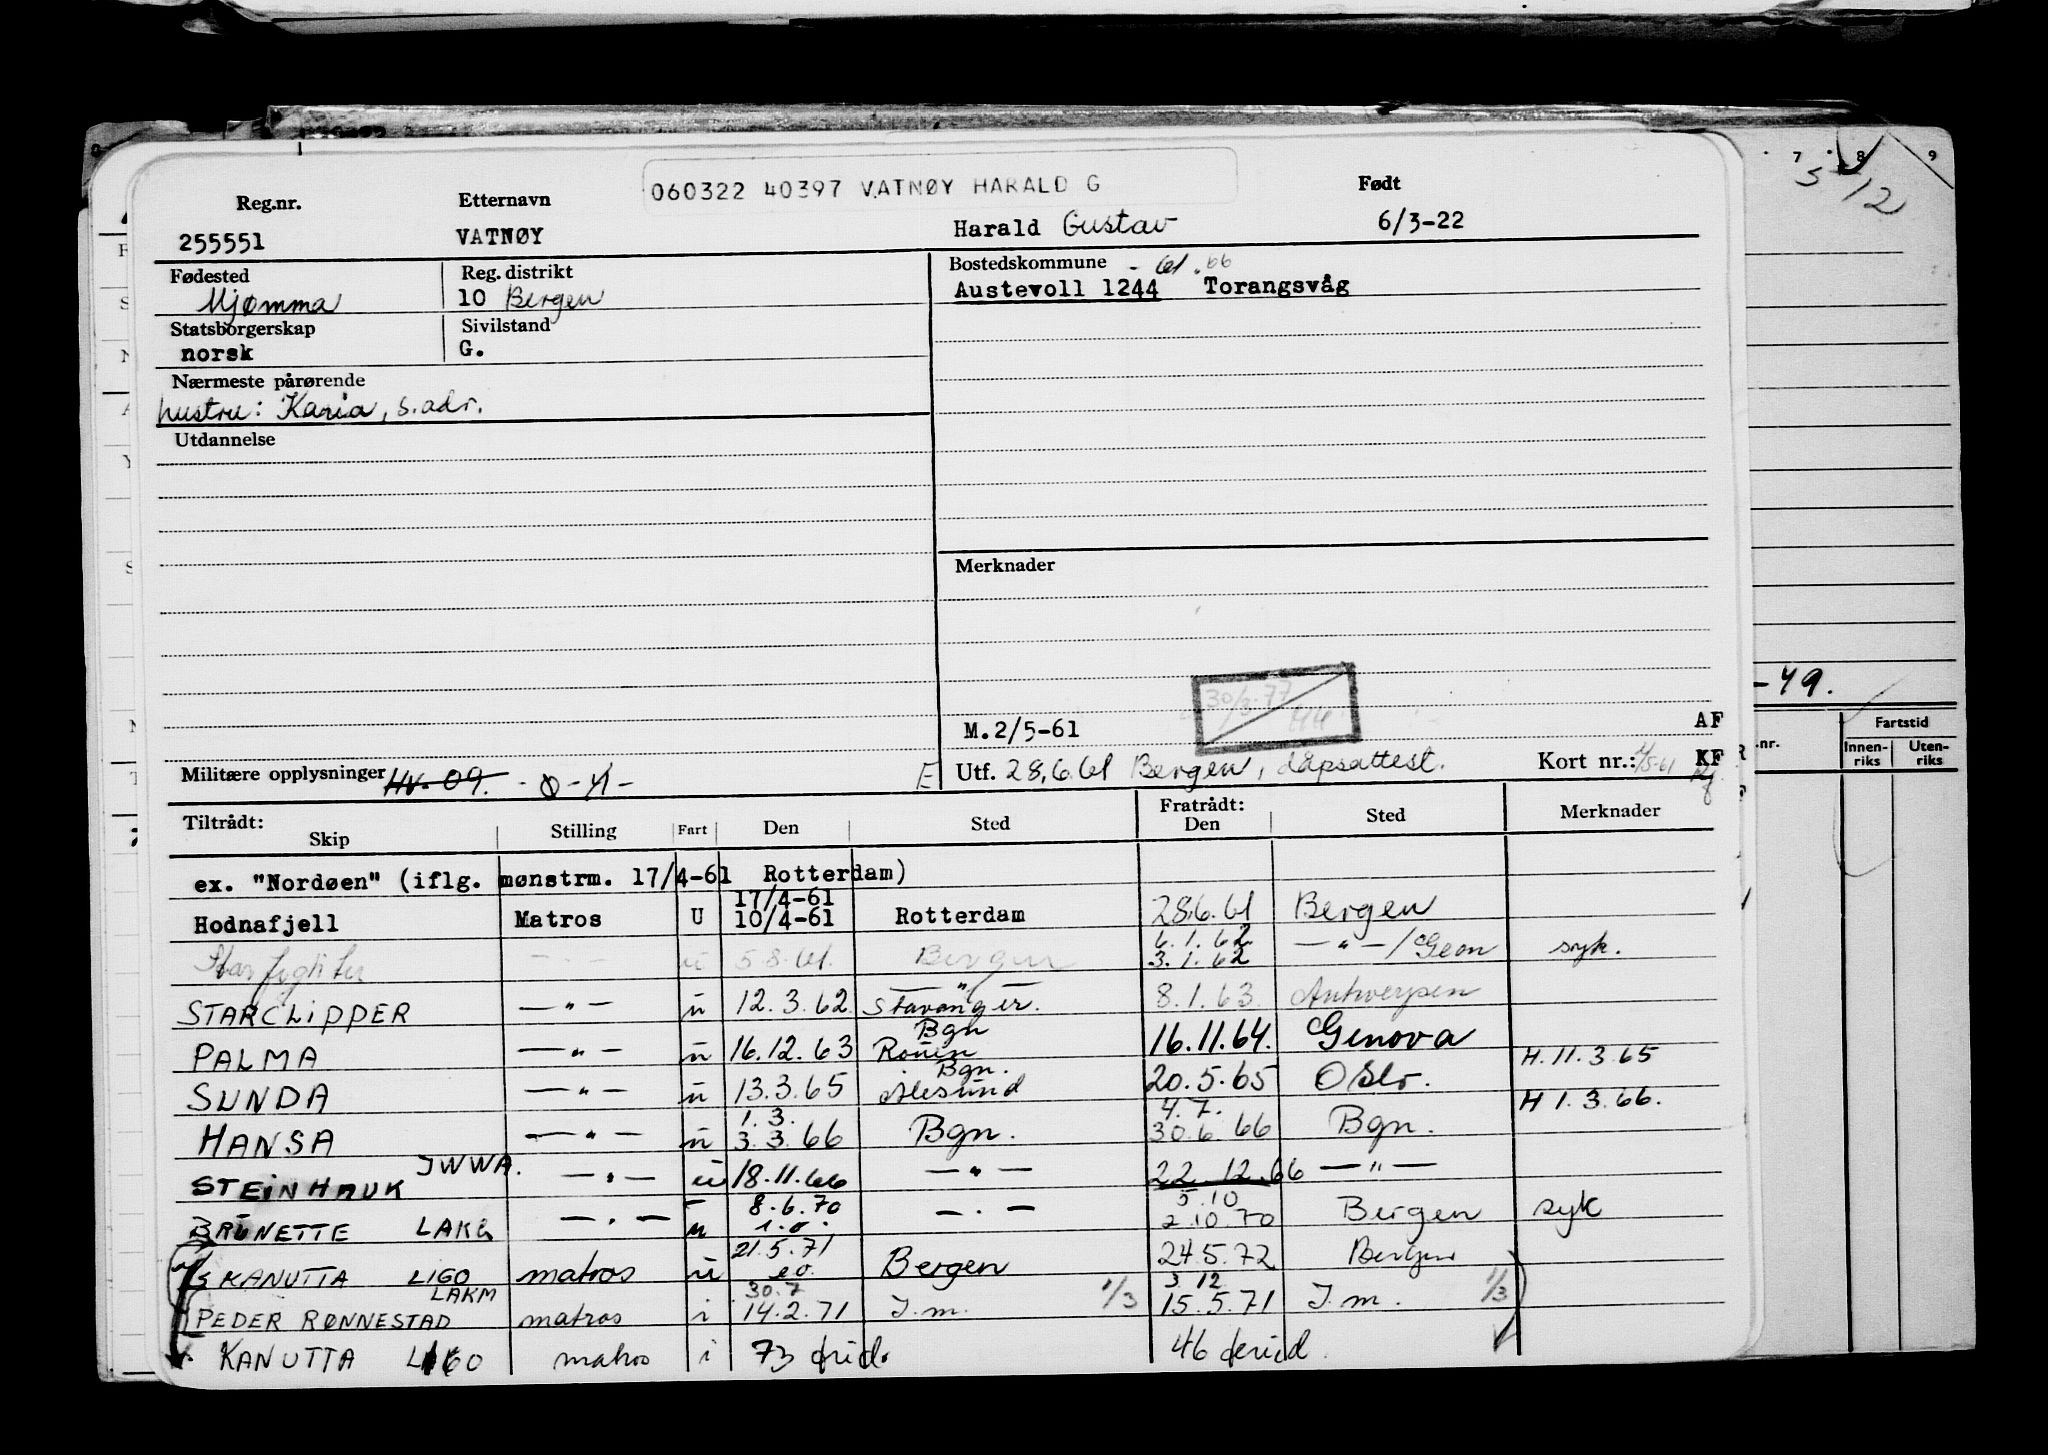 060322 40397 VATNØY HARALD G
Reg.nr. Etternavn Født
255551 VATNØY Harald Gustav 6/3-22
Fødested Reg. distrikt Bostedskommune - 61 . 66
Mjømma 10 Bergen Austevoll 1244 Torangsvåg
Statsborgerskap Sivilstand
norsk G.
Nærmeste pårørende
hustru: Karia, s.adr.
Utdannelse
Merknader
30/3-77
M.2/5-61 AF
Militære opplysninger HV-09. E Utf. 28.6.61 Bergen, dåpsattest. Kort nr.: KF
Tiltrådt: Fratrådt:
Skip Stilling Fart Den Sted Den Sted Merknader
ex. "Nordøen" (iflg. mønstrm. 17/4-61 Rotterdam)
17/4-61
Hodnafjell Matros U 10/4-61 Rotterdam 28.6.61 Bergen
6.1.62
Starfighter — " — u 5.8.61. Bergen 3.1.62 — " — / Geon syk.
— " —
STARCLIPPER — " — u 12.3.62 Stavanger. 8.1.63. Antwerpen
Bgn
PALMA — " — u 16.12.63 Rouen 16.11.64. Genova H. 11.3.65
Bgn.
SUNDA — " — u 13.3.65 Ålesund 20.5.65 Oslo. H 1.3.66.
1.3. 4.7.
HANSA — " — u 3.3.66 Bgn. 30.6.66 Bgn.
STEINHAUK JWWA. — " — u 18.11.66 — " — 22.12.66 — " —
8.6.70 5.10
BRUNETTE LAKG — " — u — " — 2.10.70 Bergen syk
21.5.71
KANUTTA LIGO matros u Bergen 24.5.72 Bergen
LAKM 30.7 3.12
PEDER RØNNESTAD matros i 14.2.71 J.m. 1/3 15.5.71 J.m. 1/3
KANUTTA LIGO matros i 73 frid. 46 ferid.
7 8 9
5/12
-49.
Fartstid
.nr. Innenriks Utenriks